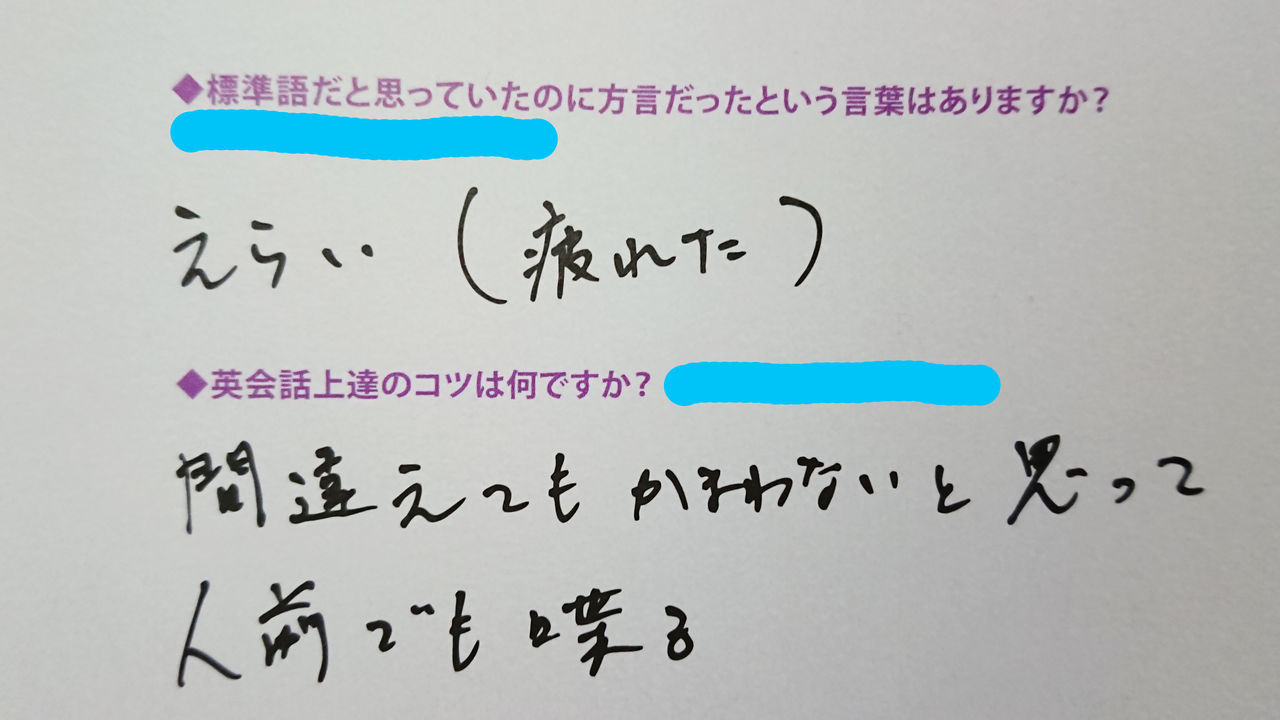 ◆標準語だと思っていたのに方言だったという言葉はありますか？
えらい（疲れた）
◆英会話上達のコツは何ですか？
間違えてもかまわないと思って
人前でも喋る